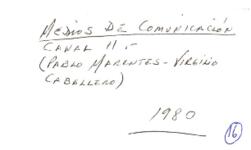 MEDIOS DE COMUNICACIÓN
CANAL 11.-
(PABLO MARENTES - VIRGILIO
CABALLERO)
1980
16